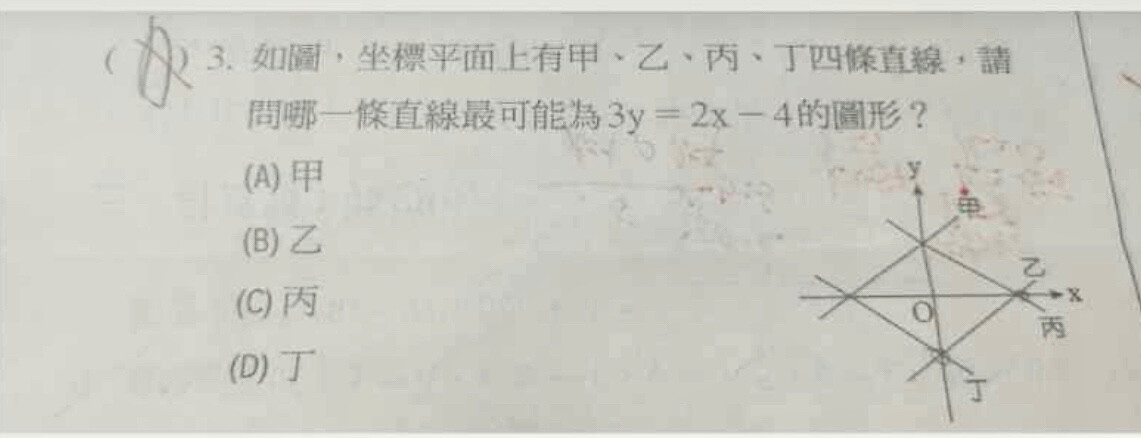 ( ) 3. 如圖，坐標平面上有甲、乙、丙、丁四條直線，請
問哪一條直線最可能為3y＝2x－4的圖形？
(A) 甲
(B) 乙
(C) 丙
(D) 丁
y
甲
乙
x
O
丙
丁